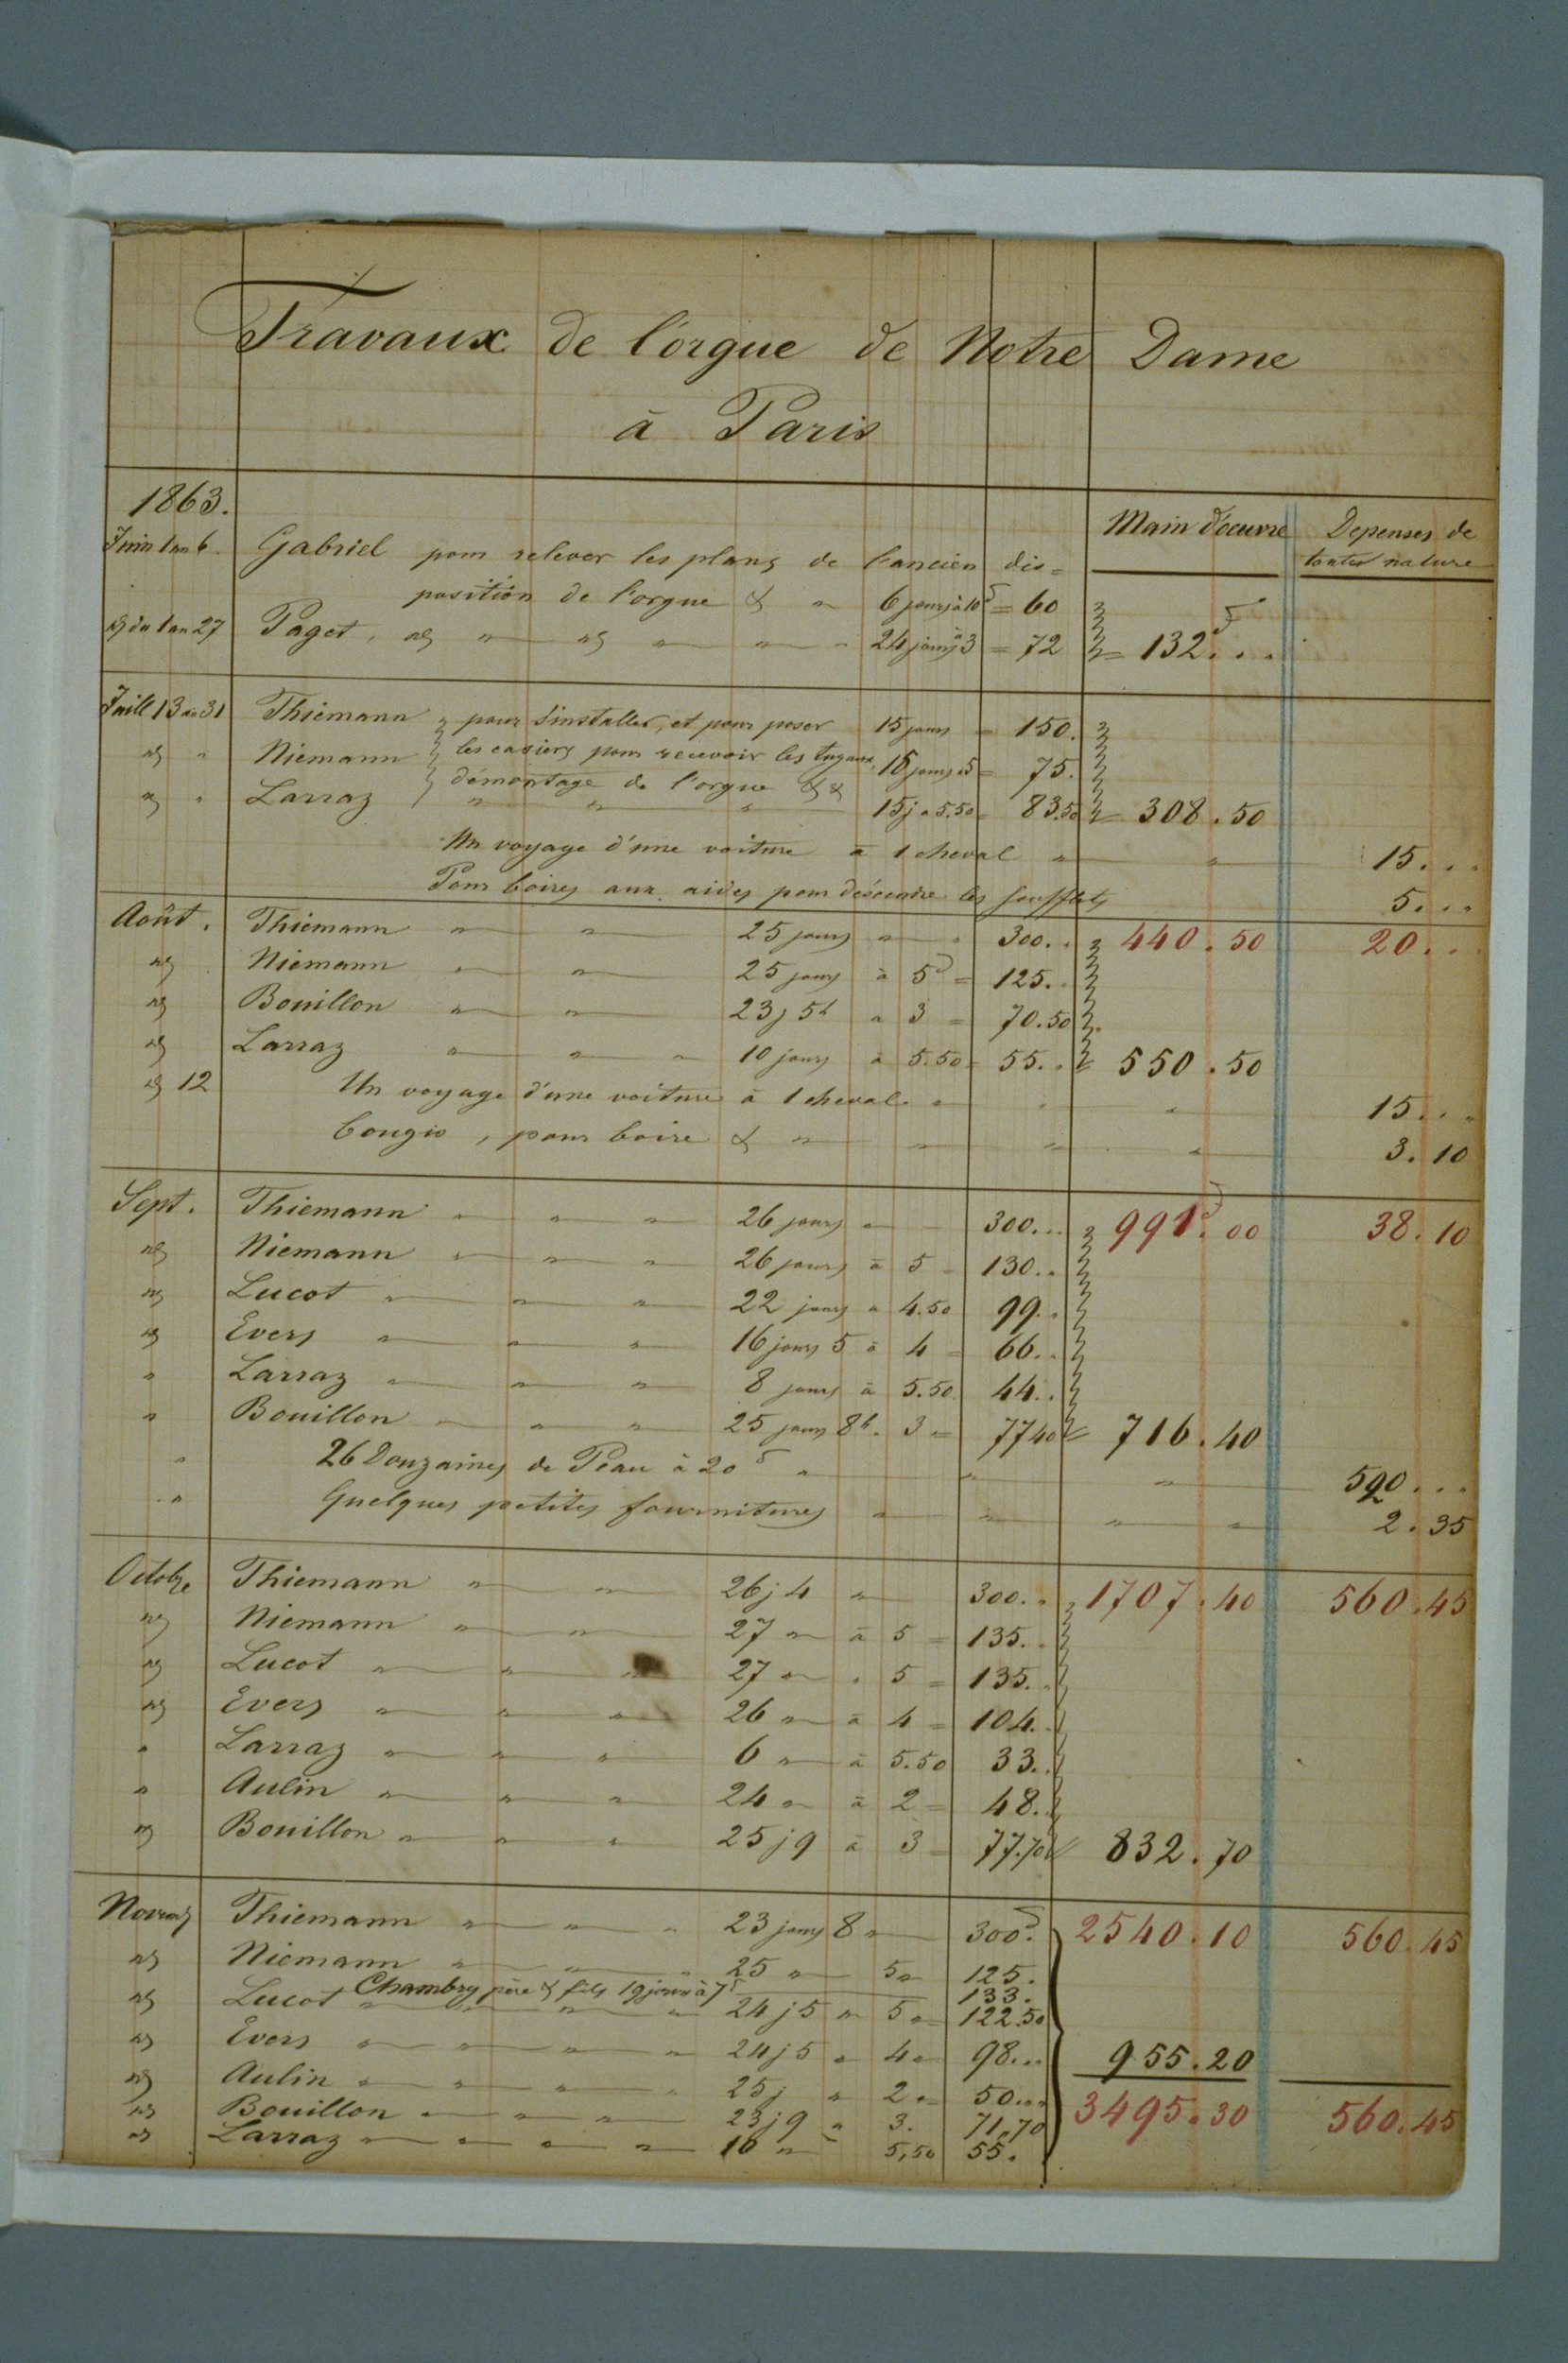 Travaux de l'orgue de Notre Dame
à Paris
1863.
Main d'oeuvre Depenses de
toutes nature
Juin 1 au 6. Gabriel pour relever les plans de l'ancien dis=
position de l'orgue & " 6 jours à 10 = 60
du 1 au 27 Paget, " " " 24 jours à 3 = 72 = 132...
Juill 13 au 31 Thiemann pour s'installer, et pour poser 15 jours = 150.
" Niemann les casiers pour recevoir les tuyaux, 15 jours à 5 = 75.
" Larraz démontage de l'orgue && 15 j à 5.50 = 83.50 = 308.50
Un voyage d'une voiture à 1 cheval " " 15...
Pour boires aux aides pour déscendre les soufflets 5...
Août. Thiemann " " 25 jours " " 300.. 440.50 20...
Niemann " " 25 jours à 5 = 125..
Bouillon " " 23 j 5h à 3 = 70.50
Larraz " " " 10 jours à 5.50 = 55.. = 550.50
12 Un voyage d'une voiture à 1 cheval " " " 15...
bougie, pour boire & " " " " 3.10
Sept. Thiemann " " " 26 jours " 300... 991.00 38.10
Niemann " " " 26 jours à 5 = 130..
Lucot " " " 22 jours à 4.50 99..
Evers " " " 16 jours 5 à 4 = 66..
" Larraz " " " 8 jours à 5.50 44..
" Bouillon " " " 25 jours 8h. 3 = 77 40 = 716.40
" 26 Douzaines de Peau à 20 " " " 520...
" Quelques petites fournitures " " " " 2.35
Octobre Thiemann " " 26 j 4 " 300.. 1707.40 560.45
Niemann " " 27 " à 5 = 135..
Lucot " " " 27 " . 5 = 135..
Evers " " " 26 " à 4 = 104..
" Larraz " " " 6 " à 5.50 33..
" Aulin " " " 24 " à 2 = 48..
Bouillon " " " 25 j 9 à 3 = 77.70 = 832.70
Thiemann " " " 23 jours 8 " 300. 2540.10 560.45
Niemann " " " 25 " 5 " 125.
Chambry père & fils 19 jours à 7 133.
Lucot " " " " 24 j 5 " 5 " = 122.50
Evers " " " " 24 j 5 " 4 " 98... 955.20
Aulin " " " " 25 j " 2 " 50...
Bouillon " " " 23 j 9 " 3. 71.70 3495.30 560.45
Larraz " " " " 10 " 5,50 55.